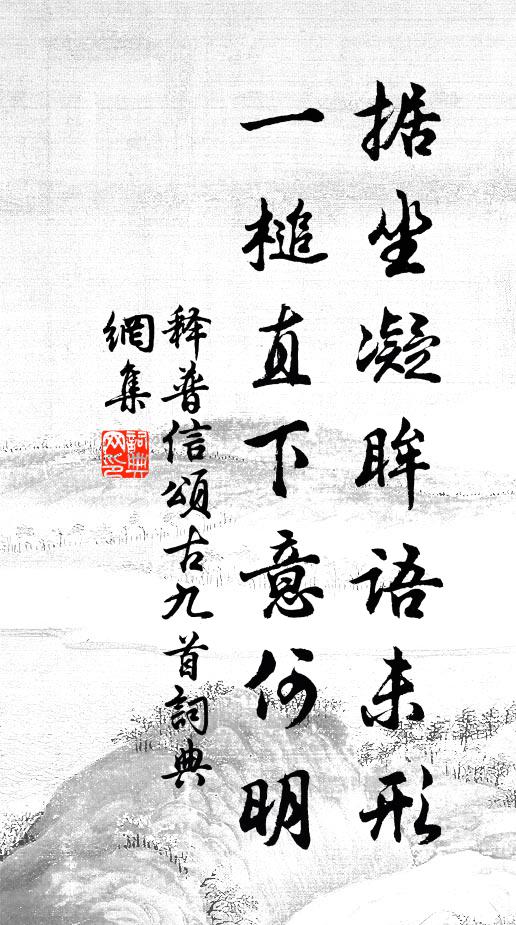 据坐凝眸語未形
一槌直下意何明
释普信頌古九首詞典
網集
詞典
网印